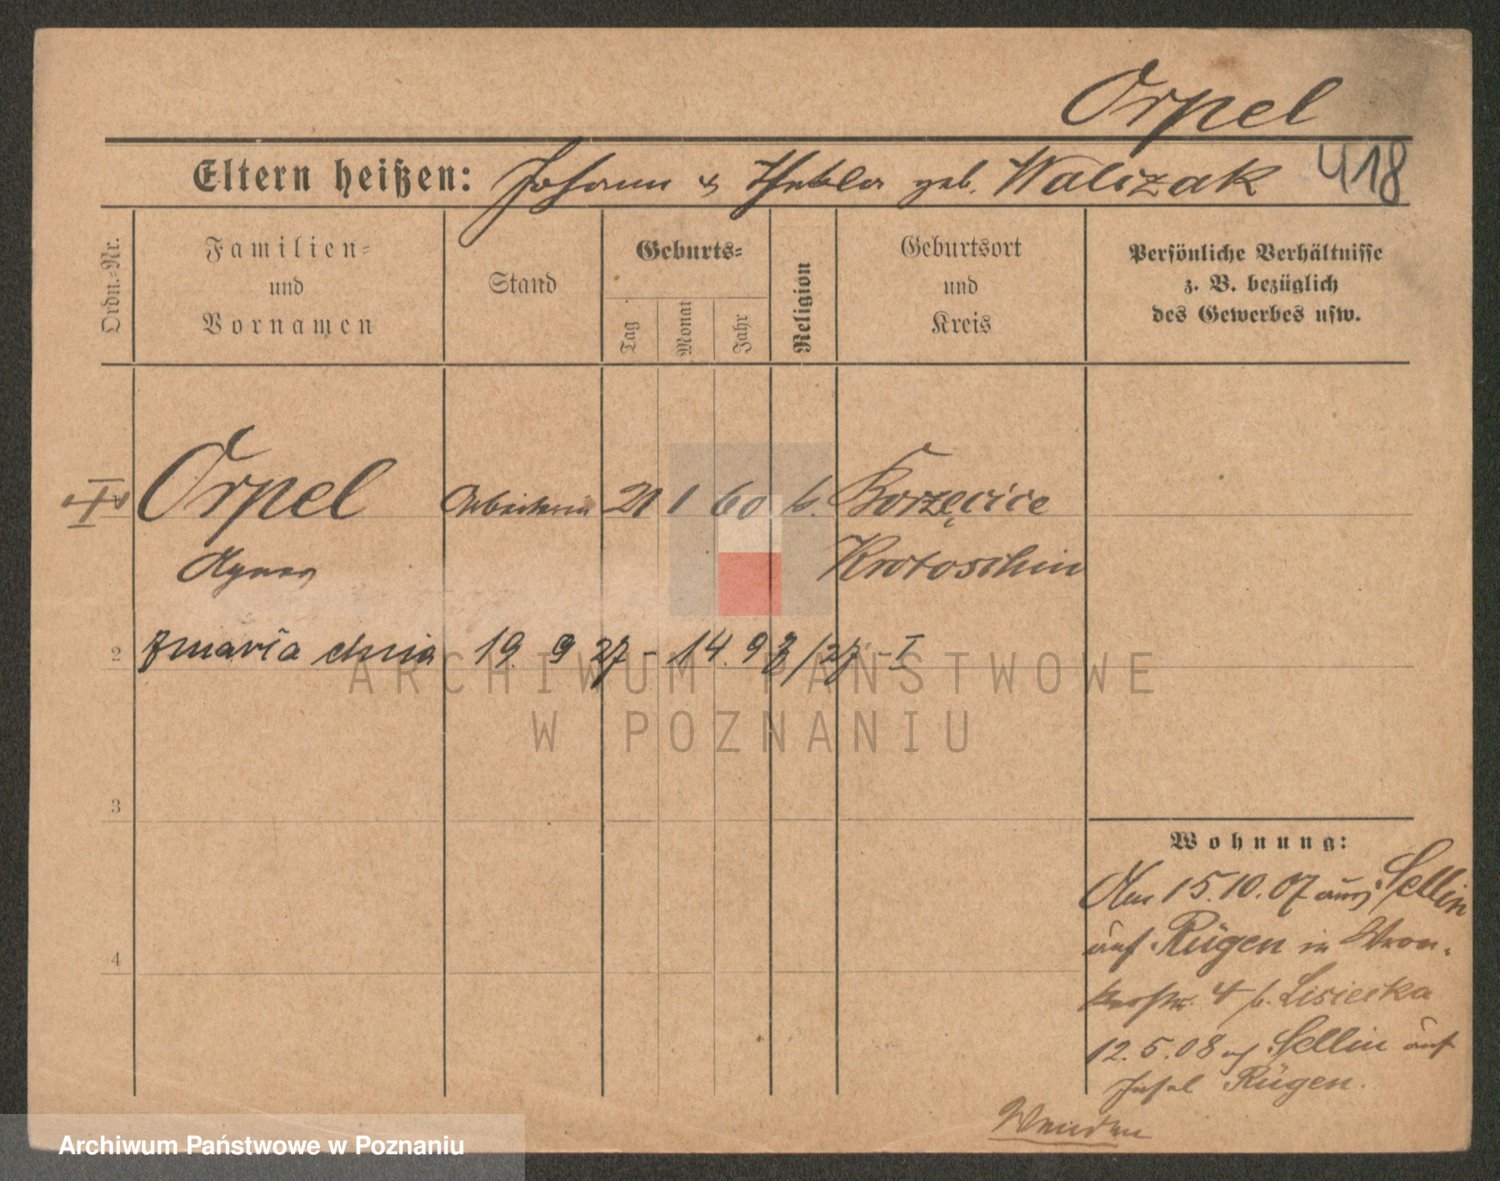 Orpel
418
Eltern heißen: Johann & Thekla geb. Walczak
Ordn.-Nr.
Familien-
und
Vornamen
Stand
Geburts-
Tag
Monat
Jahr
Religion
Geburtsort
und
Kreis
Persönliche Verhältnisse
z. B. bezüglich
des Gewerbes usw.
Orpel Arbeiterin 21 1 60 k. Borzęcice
Agnes Krotoschin
2 zmarła dnia 19. 9 27 - 14. 98/27 - I
ARCHIWUM PAŃSTWOWE
W POZNANIU
3
Wohnung:
Am 15.10.07 aus Sellin
auf Rügen in Wron-
kerstr. 4 b. Lisiecka
4
12.5.08 n. Sellin auf
Insel Rügen.
Wenden
Archiwum Państwowe w Poznaniu